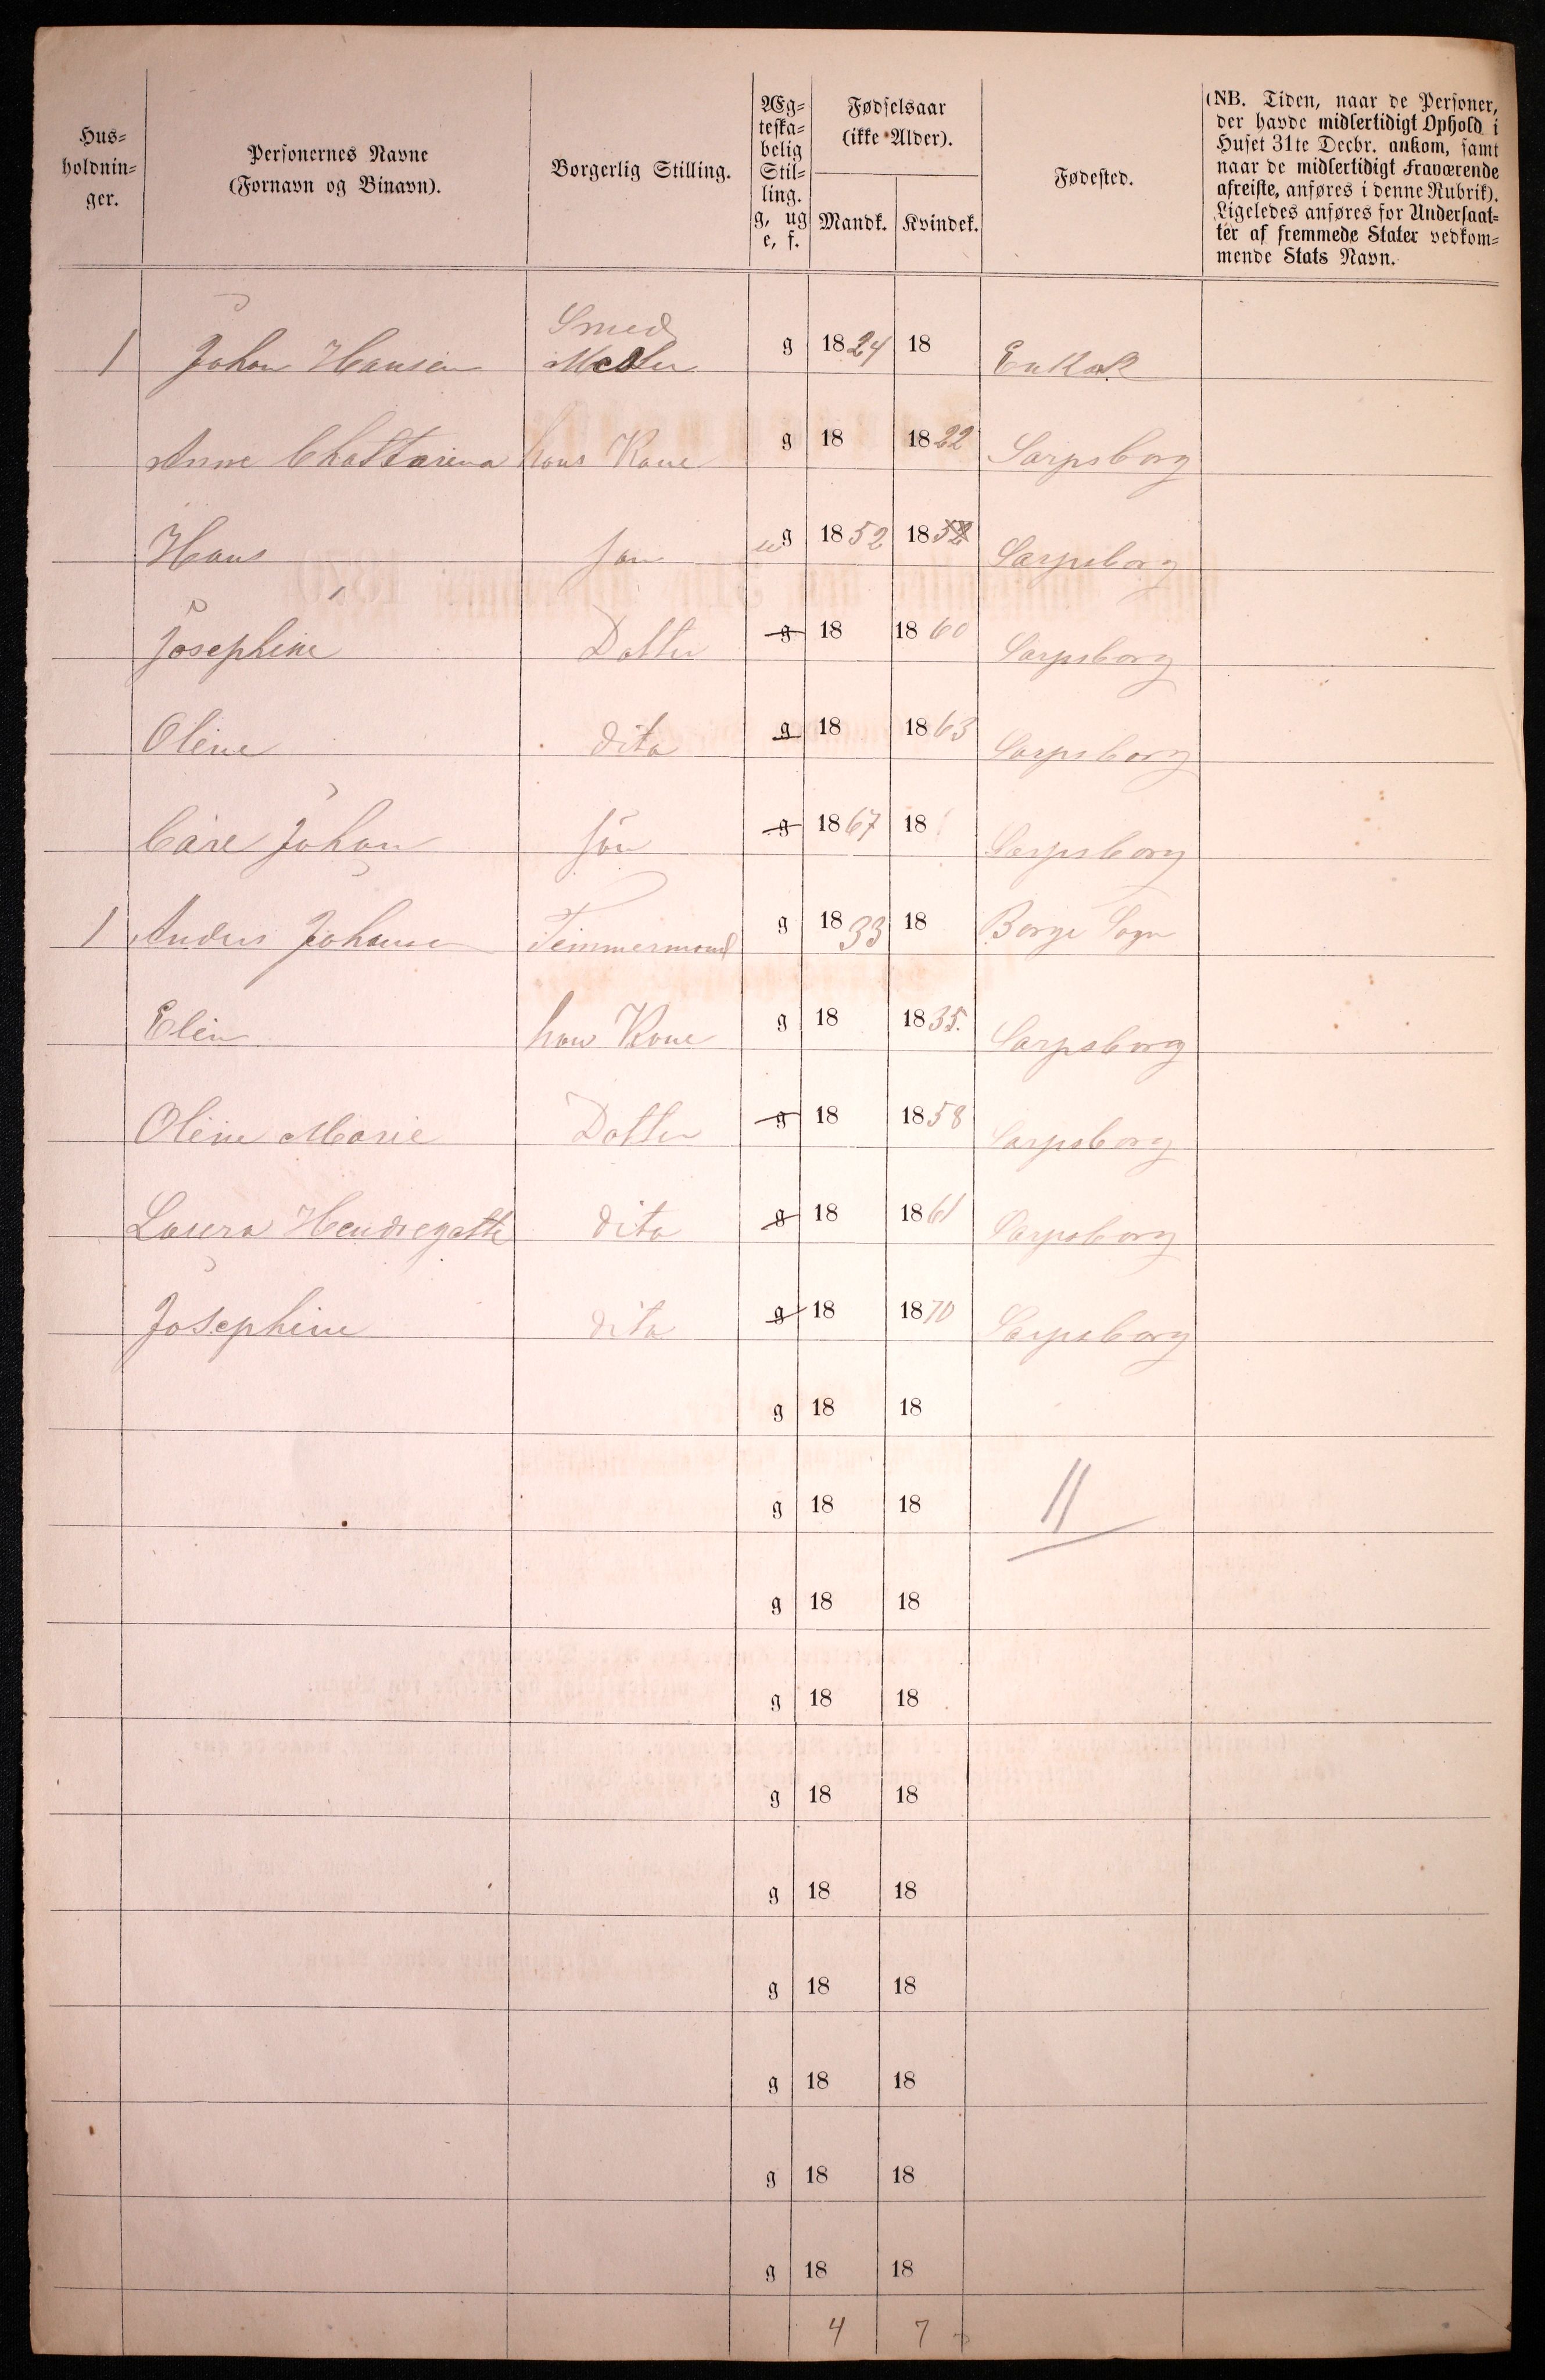 Hus=
holdnin=
ger.
Personernes Navne
(Fornavn og Binavn).
Borgerlig Stilling.
Æg=
teska=
belig
Stil=
ling.
g, ug
e, f.
Fødselsaar
(ikke Alder).
Mandk. Kvindek.
Fødested.
(NB. Tiden, naar de Personer,
der havde midlertidigt Ophold i
Huset 31te Decbr. ankom, samt
naar de midlertidigt Fraværende
afreiste, anføres i denne Rubrik).
Ligeledes anføres for Undersaat=
ter af fremmede Stater vedkom=
mende Stats Navn.
Smed
1 Johan Hansen g 1824 18
Anne Chattarina hans Kone g 18 1822 Sarpsborg
Hans søn ug 1852 18 Sarpsborg
Josephine Datter g 18 1860 Sarpsborg
Oline dito g 18 1863 Sarpsborg
Carl Johan søn g 1867 18 Sarpsborg
1 Anders Johansen Timmermand g 1833 18 Borge Sogn
Elin hans Kone g 18 1835. Sarpsborg
Oline Marie Datter g 18 1858 Sarpsborg
Laura Hendregatte dito g 18 1861 Sarpsborg
Josephine dito g 18 1870 Sarpsborg
g 18 18
g 18 18 11
g 18 18
g 18 18
g 18 18
g 18 18
g 18 18
g 18 18
g 18 18
g 18 18
4 7